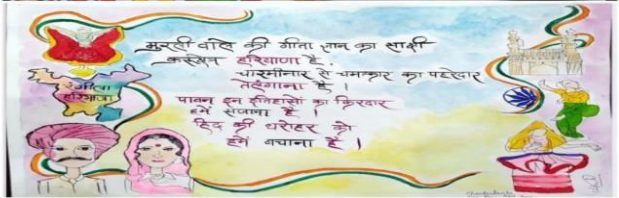 मुरली वाले की गीता ज्ञान का साक्षी
हरियाणा है,
चारमीनार से चमत्कार का पहरेदार
तेलंगाना है ।
पावन इन इतिहासों का किरदार
हमें सजाना है ।
हिंद की धरोहर को
हमें बचाना है ।
गीता
हरियाणा